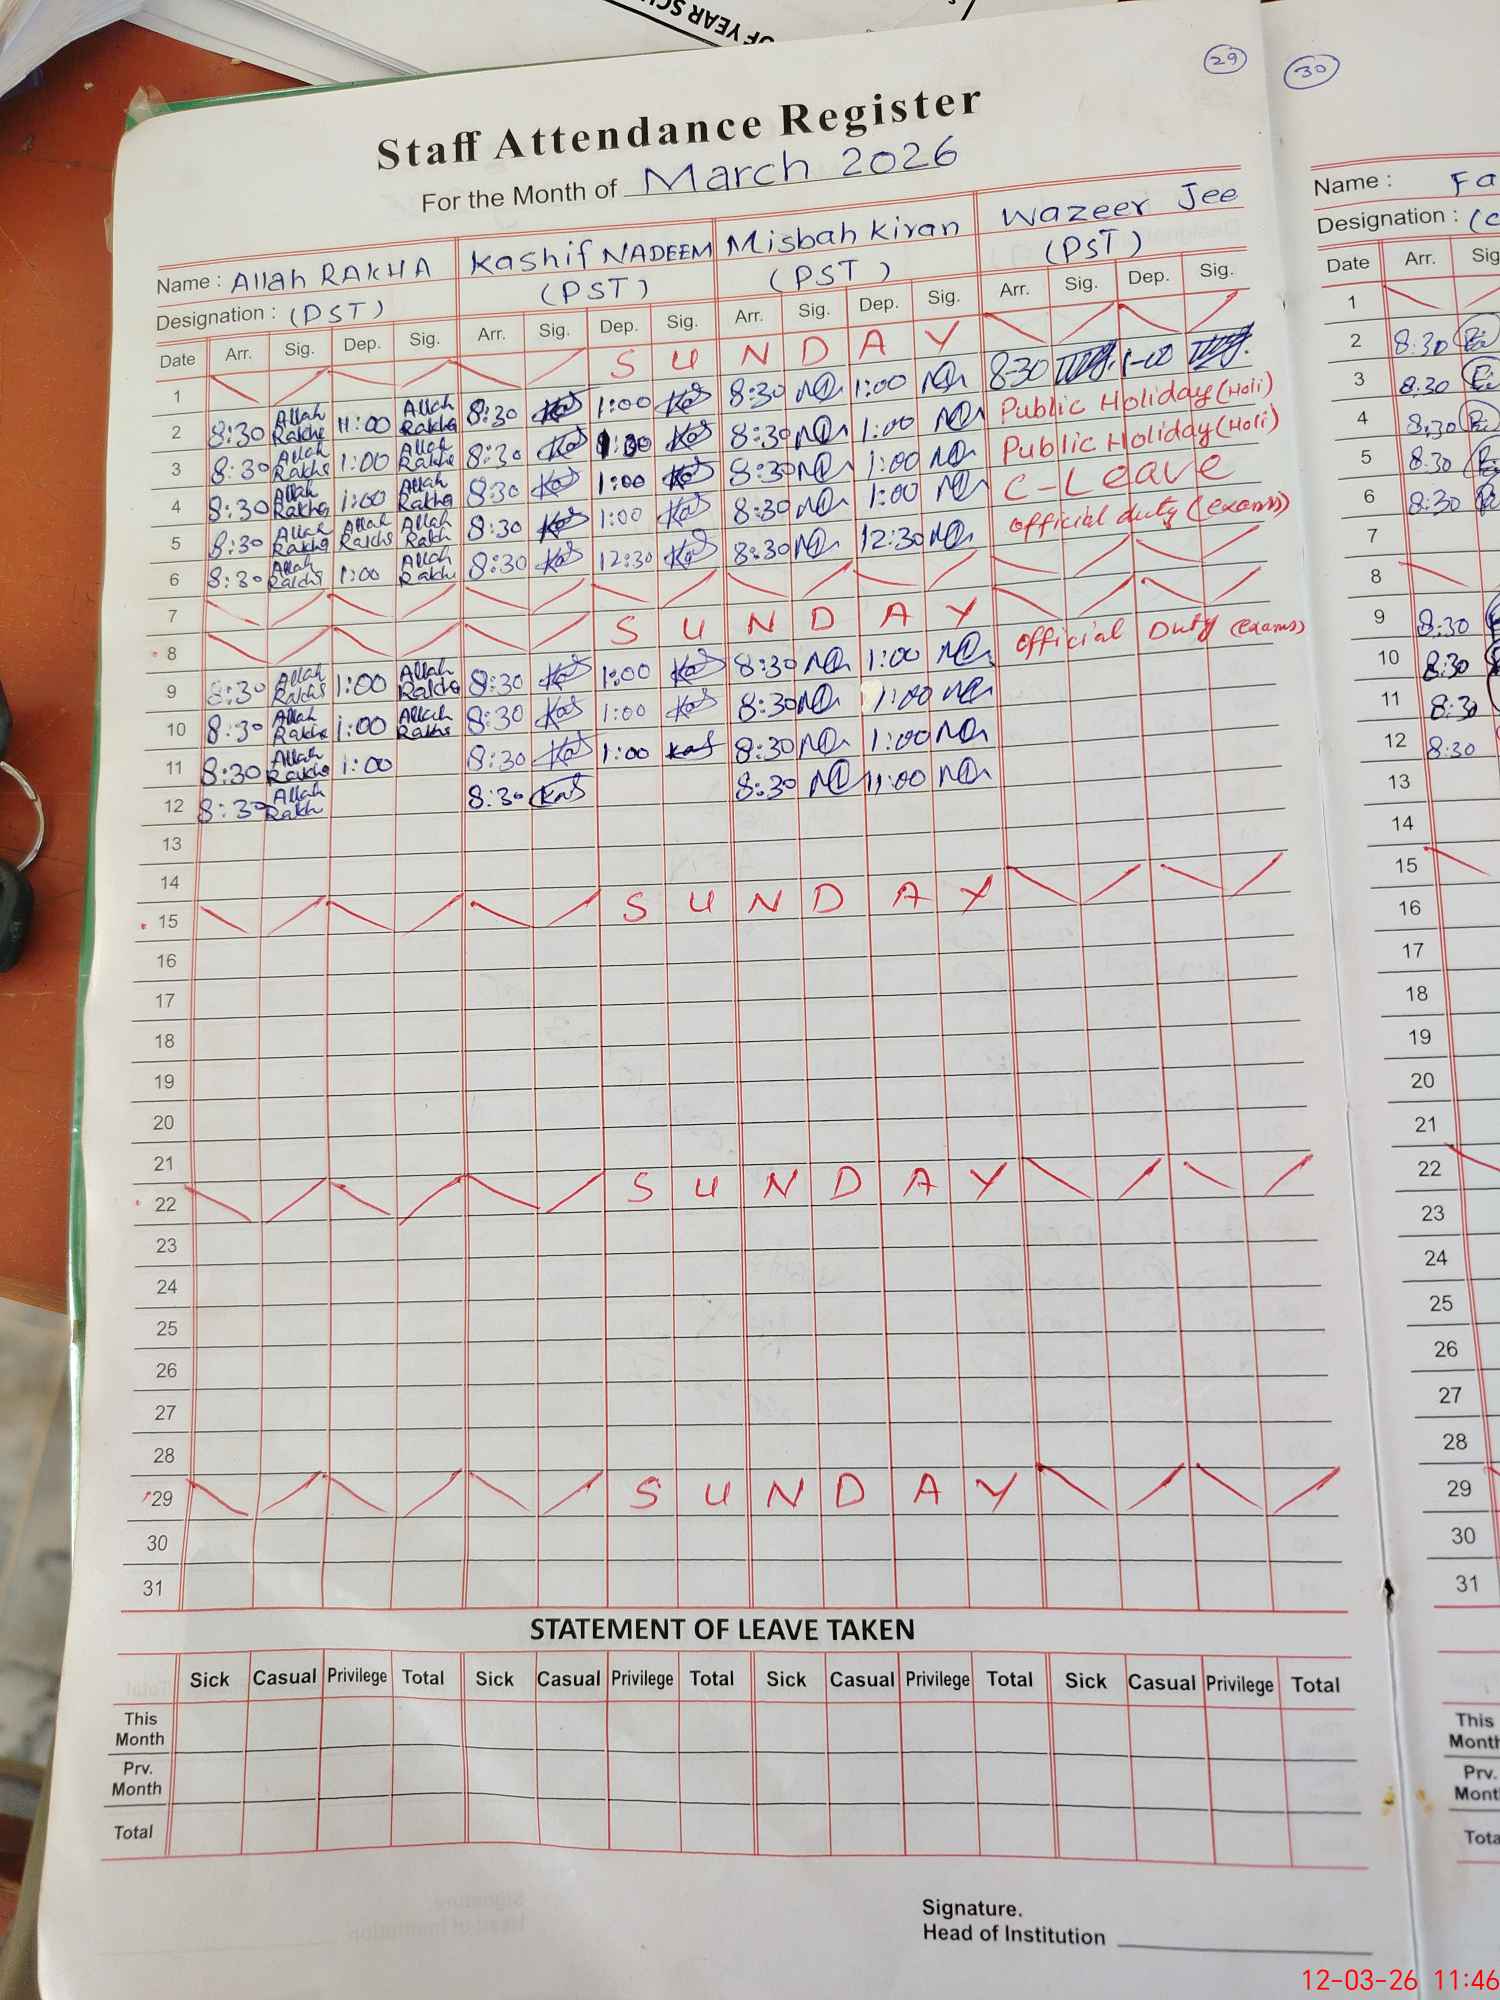 OF YEAR SCH
29
30
Staff Attendance Register
For the Month of March 2026
Name : Allah RAKHA Kashif NADEEM Misbah Kiran Wazeer Jee
Designation : (PST) (PST) (PST) (PST)
Date Arr. Sig. Dep. Sig. Arr. Sig. Dep. Sig. Arr. Sig. Dep. Sig. Arr. Sig. Dep. Sig.
1 S U N D A Y
2 8:30 Allah Rakha 11:00 Allah Rakha 8:30 Kas 1:00 Kas 8:30 1:00 830 1-00
3 8:30 Allah Rakha 1:00 Allah Rakha 8:30 Kas 1:30 Kas 8:30 1:00 Public Holiday (Holi)
4 8:30 Allah Rakha 1:00 Allah Rakha 8:30 Kas 1:00 Kas 8:30 1:00 Public Holiday (Holi)
5 8:30 Allah Rakha Allah Rakha Allah Rakh 8:30 Kas 1:00 Kas 8:30 1:00 C-Leave
6 8:30 Allah Rakha 1:00 Allah Rakha 8:30 Kas 12:30 Kas 8:30 12:30 official duty (exams)
7
8 S U N D A Y
9 8:30 Allah Rakha 1:00 Allah Rakha 8:30 Kas 1:00 Kas 8:30 1:00 official Duty (exams)
10 8:30 Allah Rakha 1:00 Allah Rakha 8:30 Kas 1:00 Kas 8:30 1:00
11 8:30 Allah Rakha 1:00 8:30 Kas 1:00 Kas 8:30 1:00
12 8:30 Allah Rakh 8:30 Kas 8:30 11:00
13
14
15 S U N D A Y
16
17
18
19
20
21
22 S U N D A Y
23
24
25
26
27
28
29 S U N D A Y
30
31
STATEMENT OF LEAVE TAKEN
Sick Casual Privilege Total Sick Casual Privilege Total Sick Casual Privilege Total Sick Casual Privilege Total
This Month
Prv. Month
Total
Signature.
Head of Institution
Name : Fa
Designation : (C
Date Arr. Sig
1
2 8:30
3 8:30
4 8:30
5 8:30
6 8:30
7
8
9 8:30
10 8:30
11 8:30
12 8:30
13
14
15
16
17
18
19
20
21
22
23
24
25
26
27
28
29
30
31
This
Month
Prv.
Mont
Tota
12-03-26 11:46